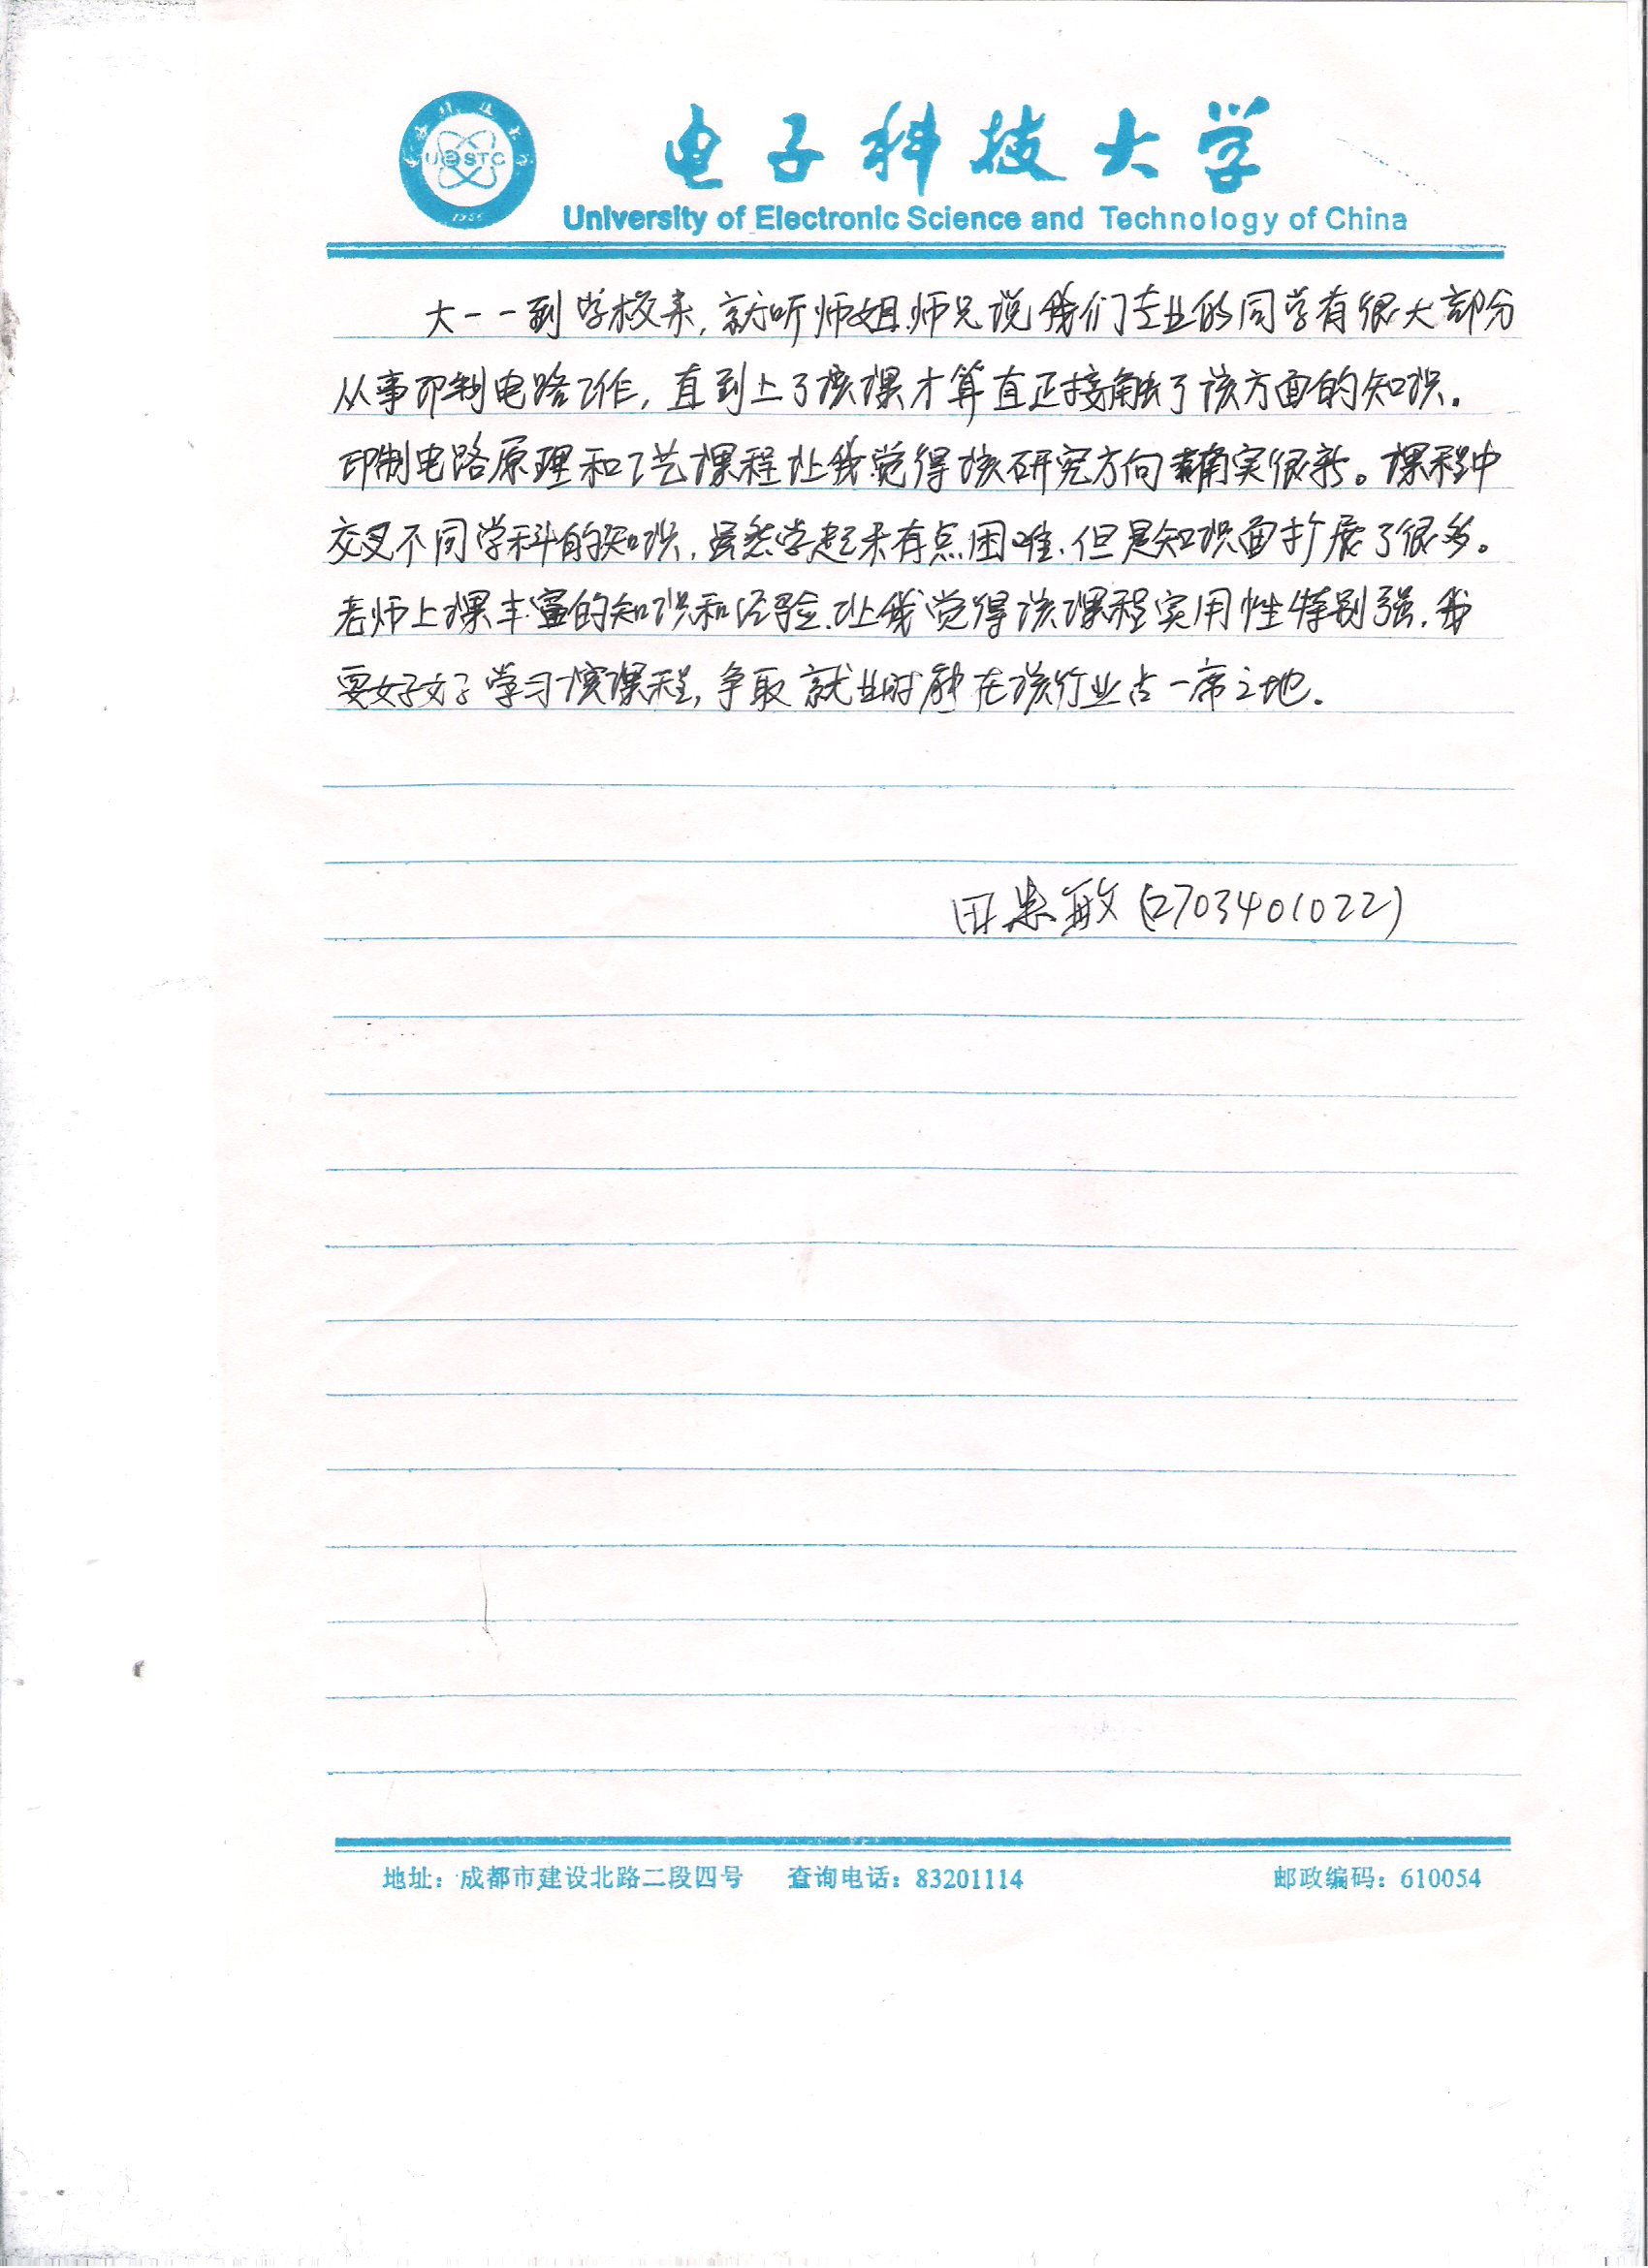 UESTC
1956
电子科技大学
University of Electronic Science and Technology of China
大一一到学校来,就听师姐师兄说我们专业的同学有很大部分
从事印制电路工作,直到上了该课才算真正接触了该方面的知识.
印制电路原理和工艺课程让我觉得该研究方向确实很新。课程中
交叉不同学科的知识,虽然学起来有点困难,但是知识面扩展了很多。
老师上课丰富的知识和经验,让我觉得该课程实用性特别强,我
要好好学习该课程,争取就业时能在该行业占一席之地.
田 敏(2703401022)
地址:成都市建设北路二段四号 查询电话:83201114 邮政编码:610054